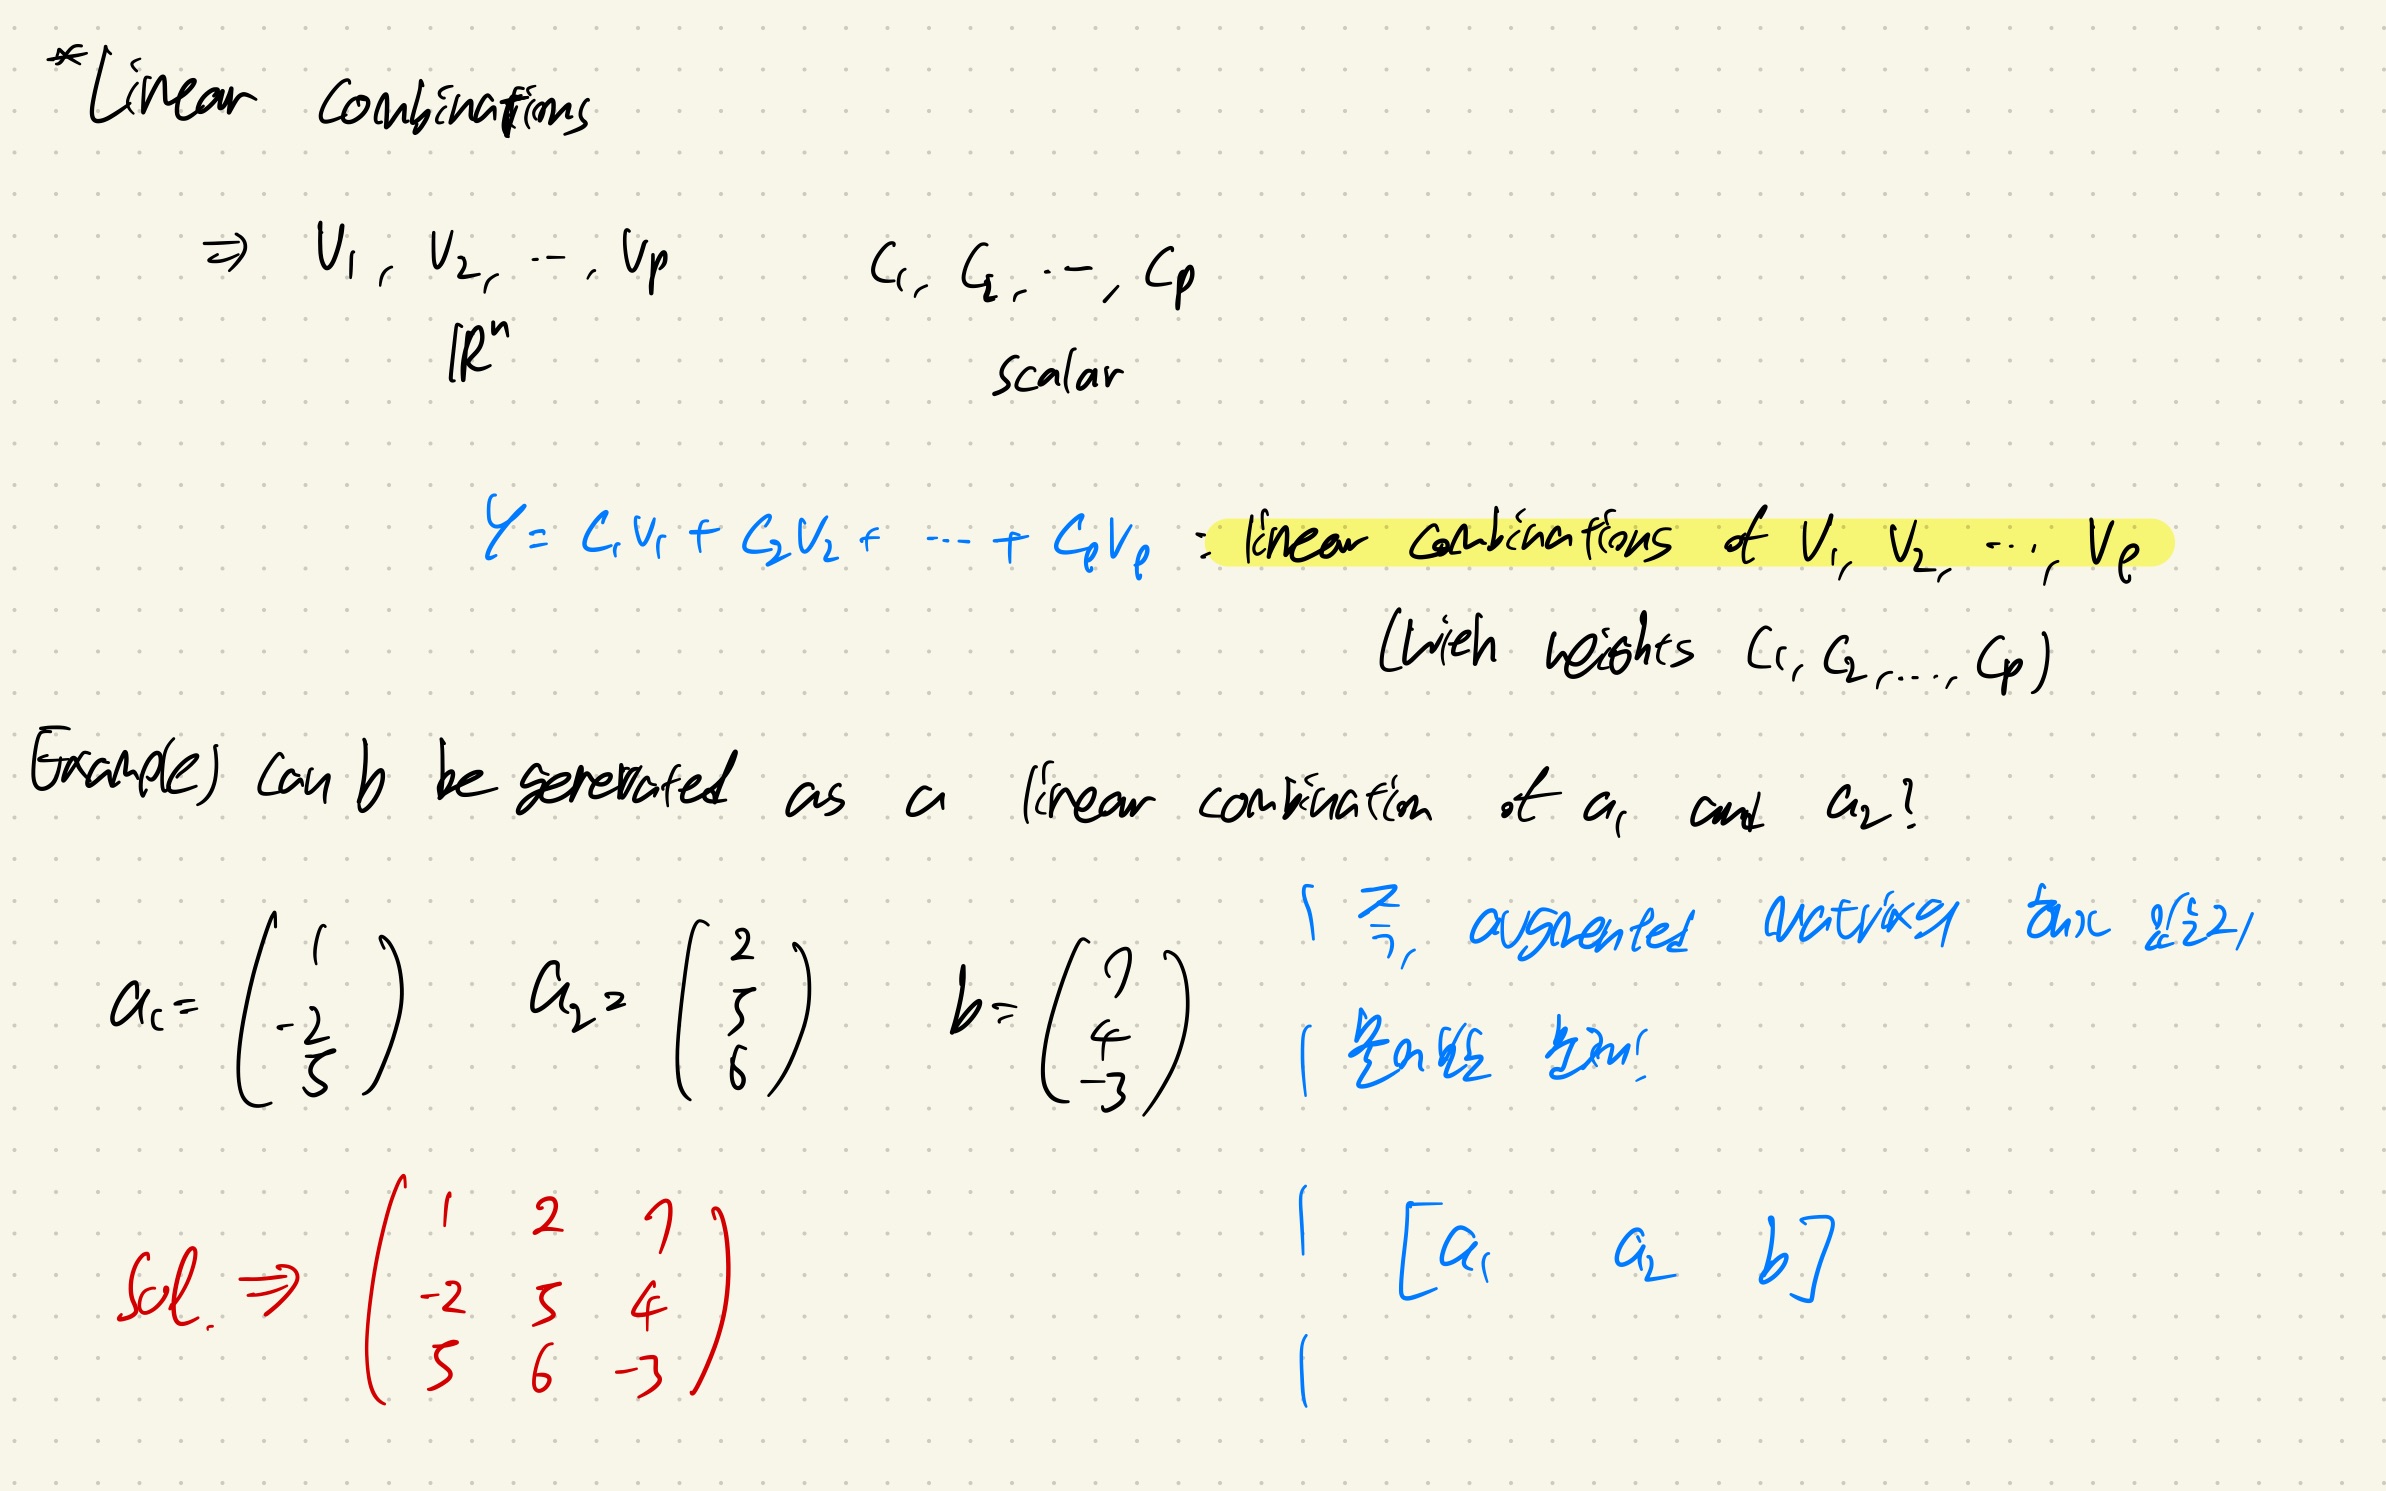 *Linear Combinations
⇒ V₁, V₂, ..., Vp    C₁, C₂, ..., Cp
ℝⁿ    scalar
Y = C₁V₁ + C₂V₂ + ... + CpVp : linear combinations of V₁, V₂, ..., Vp
(with weights C₁, C₂, ..., Cp)
Example) Can b be generated as a linear combination of a₁ and a₂?
a₁ = (1 -2 5)    a₂ = (2 5 6)    b = (7 4 -3)
즉, augmented matrix의
sol. ⇒ (1 2 7
-2 5 4
5 6 -3)
[a₁ a₂ b]